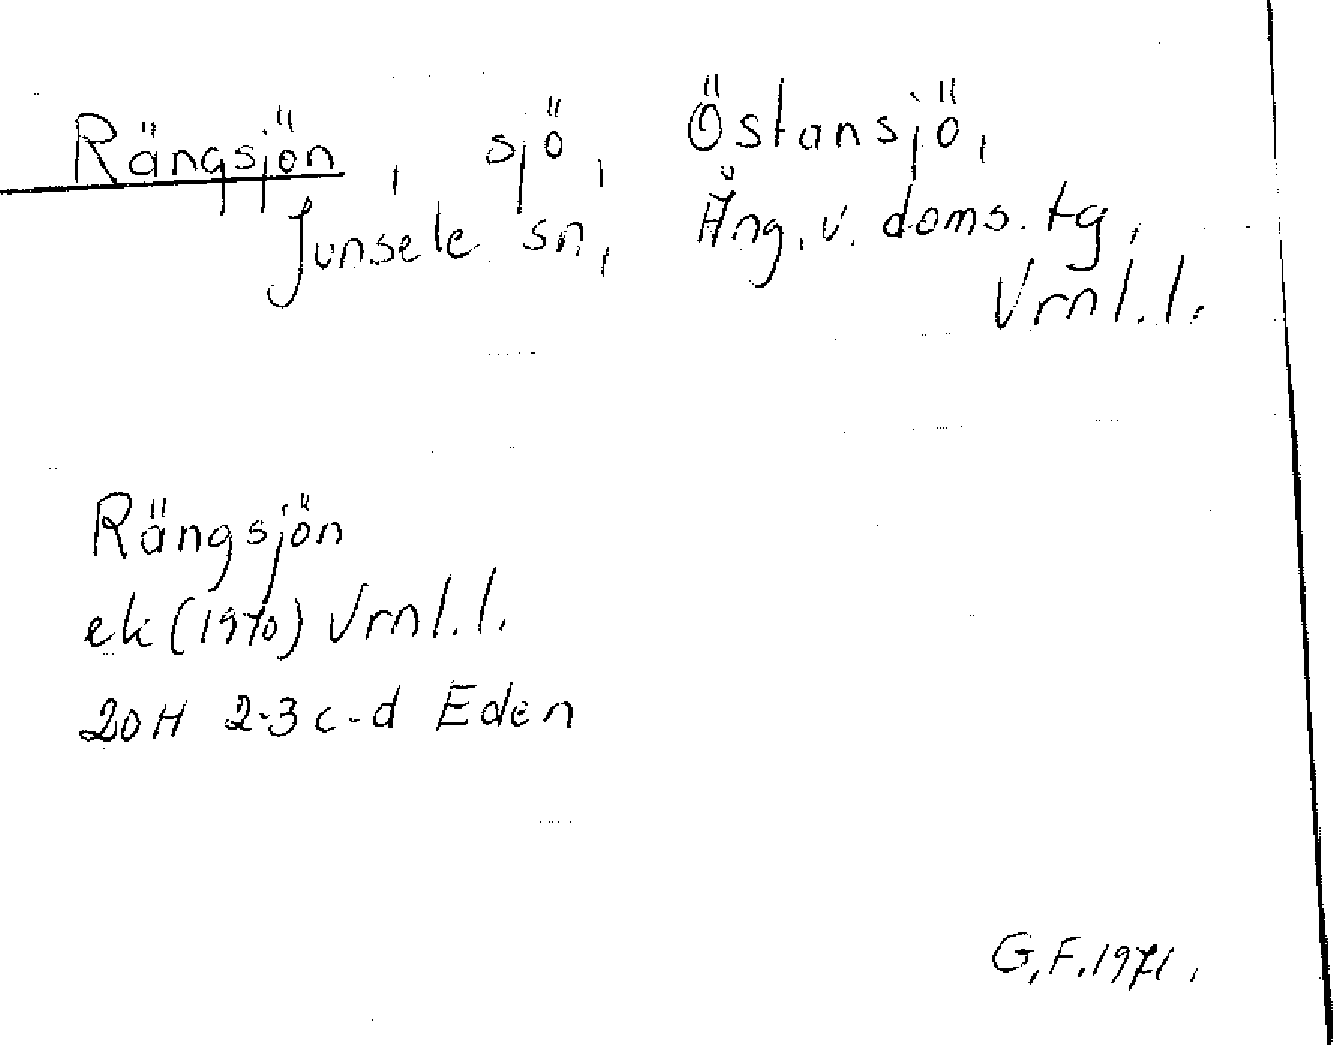 Rängsjön, sjö, Östansjö,
Junsele sn, Ång. v. doms. tg,
Vrnl.l.
Rängsjön
ek (1970) Vrnl.l.
20H 2-3 c-d Eden
G.F. 1971.